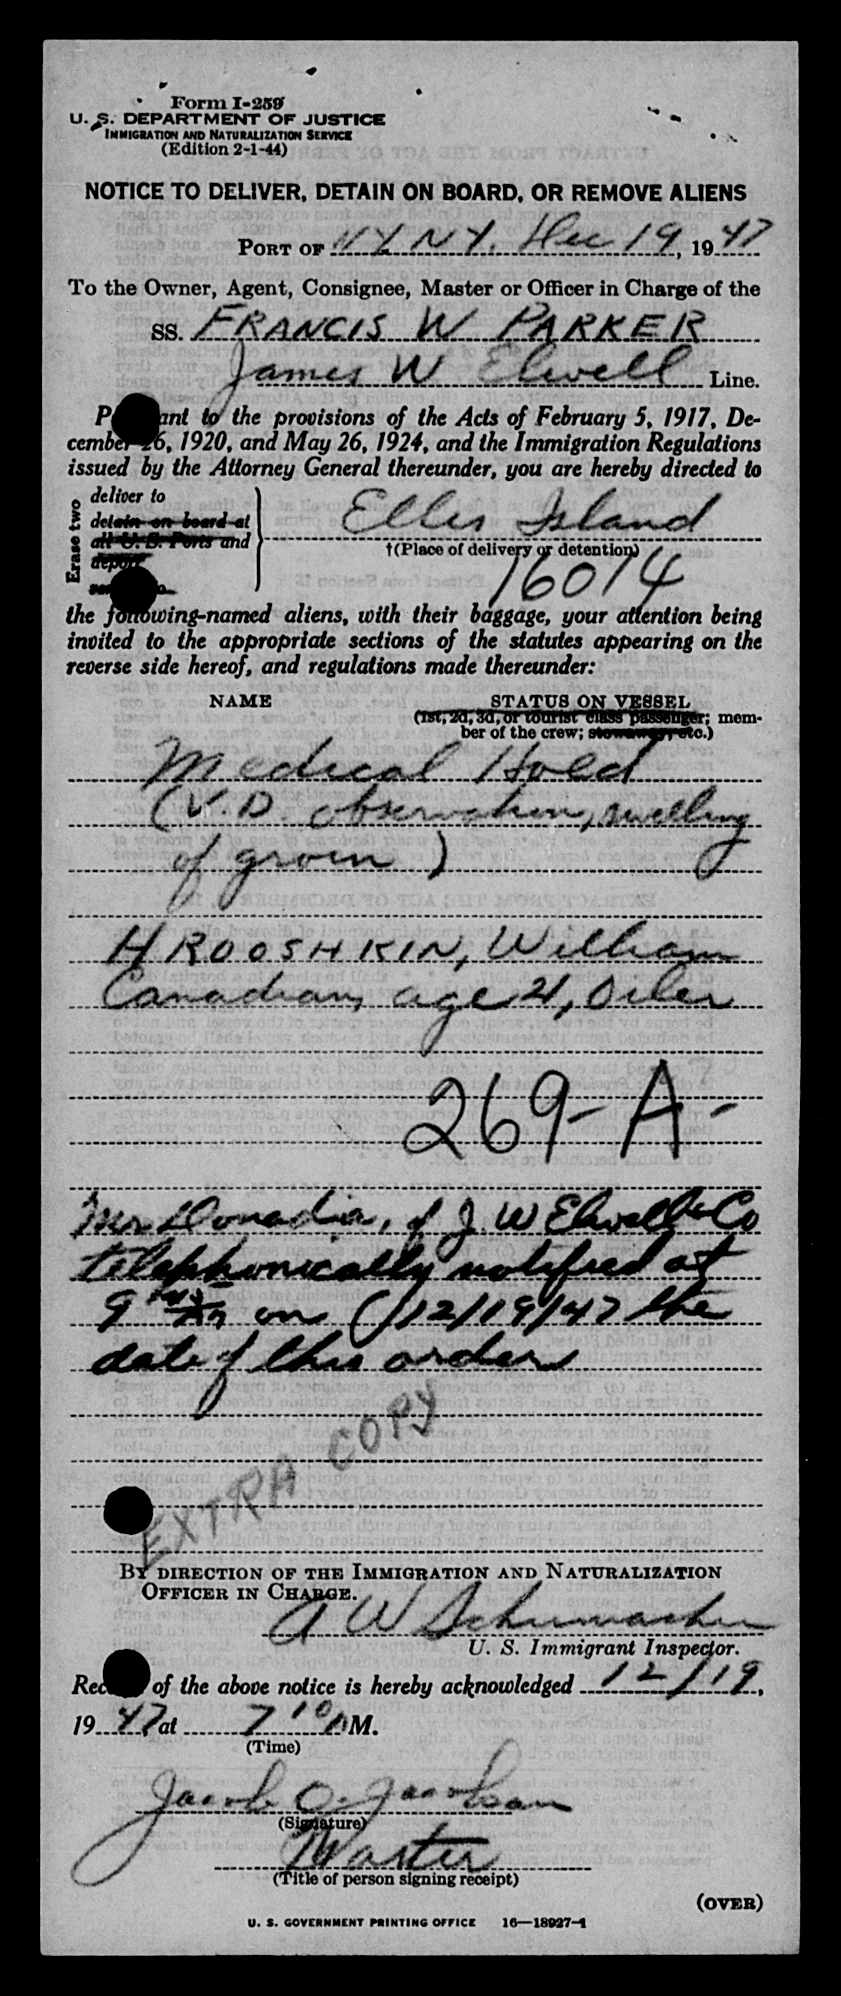 Form I-259
U. S. DEPARTMENT OF JUSTICE
IMMIGRATION AND NATURALIZATION SERVICE
(Edition 2-1-44)
NOTICE TO DELIVER, DETAIN ON BOARD, OR REMOVE ALIENS
PORT OF N Y N Y. Dec 19, 1947
To the Owner, Agent, Consignee, Master or Officer in Charge of the
SS. FRANCIS W PARKER
James W Elwell Line.
P ant to the provisions of the Acts of February 5, 1917, De-
cember 26, 1920, and May 26, 1924, and the Immigration Regulations
issued by the Attorney General thereunder, you are hereby directed to
Erase two
deliver to
detain on board at
all U. S. Ports and
deport
Ellis Island
†(Place of delivery or detention)
16014
the following-named aliens, with their baggage, your attention being
invited to the appropriate sections of the statutes appearing on the
reverse side hereof, and regulations made thereunder:
NAME STATUS ON VESSEL
(1st, 2d, 3d, or tourist class passenger; mem-
ber of the crew; stowaway, etc.)
Medical Hold
(V.D. observation, swelling
of groin)
HROOSHKIN, William
Canadian, age 21, Oiler
269-A-
Mr Donadia, of J. W Elwell & Co
telephonically notified at
9 on 12/19/47 the
date of this order
EXTRA COPY
BY DIRECTION OF THE IMMIGRATION AND NATURALIZATION
OFFICER IN CHARGE.
A W Schumacher
U. S. Immigrant Inspector.
Rec of the above notice is hereby acknowledged 12/19,
1947 at 7 10 AM.
(Time)
Jacob O. Jacobsen
(Signature)
Master
(Title of person signing receipt)
(OVER)
U. S. GOVERNMENT PRINTING OFFICE 16—18927-1